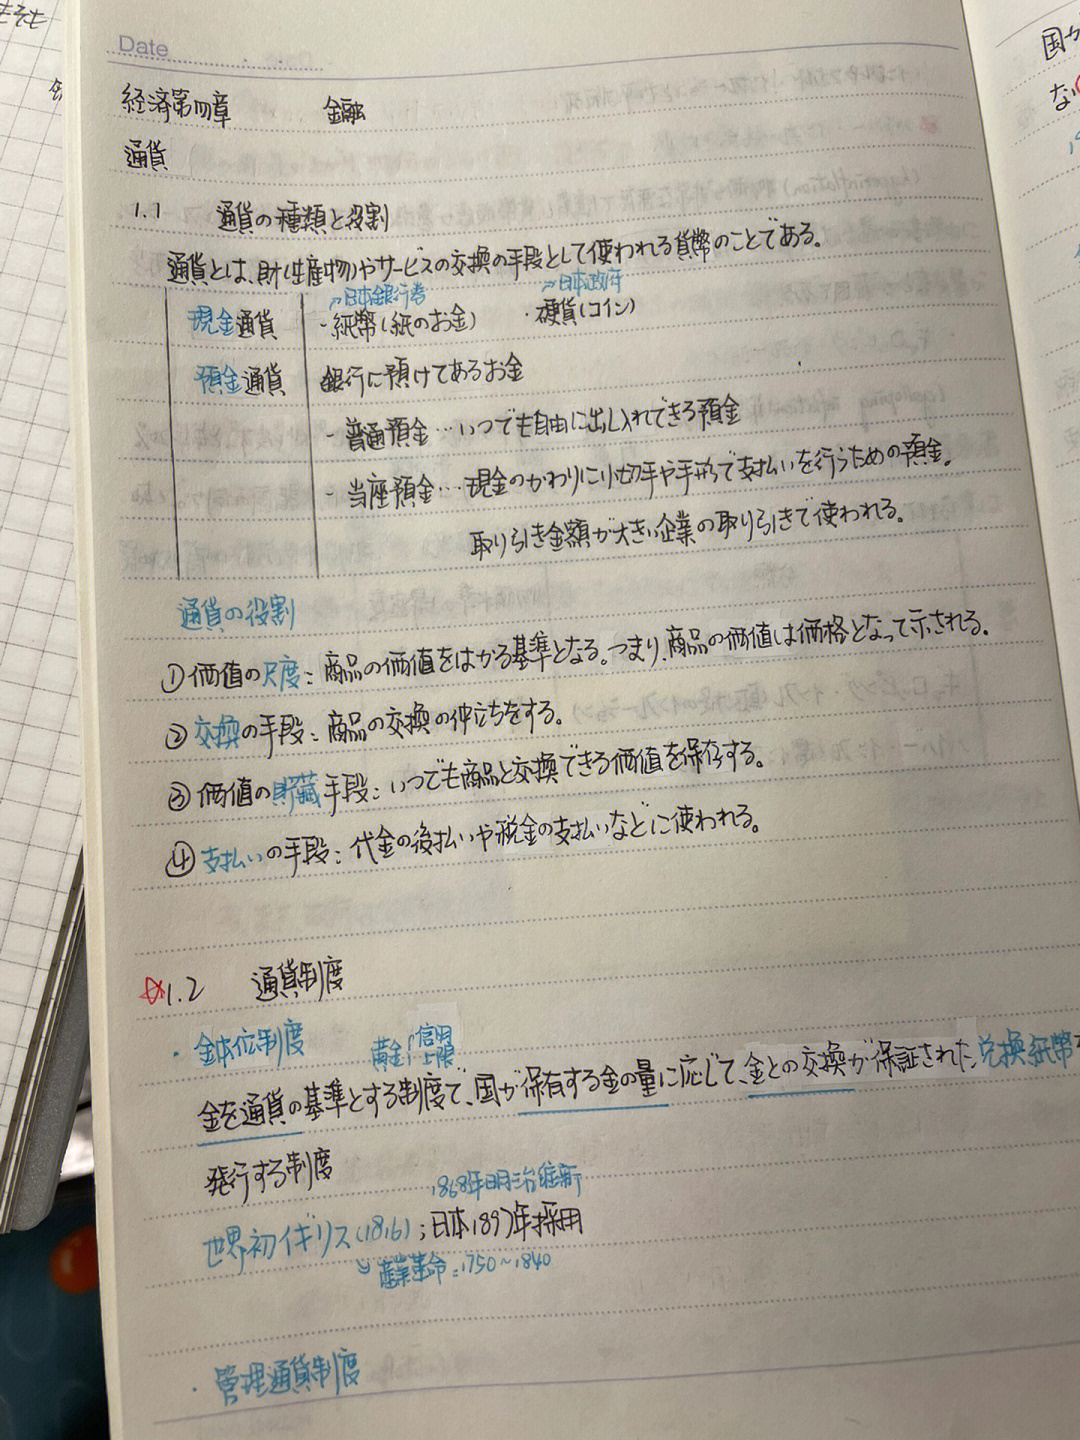 Date
経済第四章 金融
通貨
1.1 通貨の種類と役割
通貨とは、財(生産物)やサービスの交換の手段として使われる貨幣のことである。
→日本銀行券 →日本政府
現金通貨 ・紙幣(紙のお金) ・硬貨(コイン)
預金通貨 銀行に預けてあるお金
- 普通預金…いつでも自由に出し入れできる預金
- 当座預金…現金のかわりに小切手や手形で支払いを行うための預金。
取り引き金額が大きい企業の取り引きで使われる。
通貨の役割
①価値の尺度:商品の価値をはかる基準となる。つまり、商品の価値は価格となって示される。
②交換の手段:商品の交換の仲立ちをする。
③価値の貯蔵手段:いつでも商品と交換できる価値を保存する。
④支払いの手段:代金の後払いや税金の支払いなどに使われる。
☆1.2 通貨制度
・金本位制度 黄金 信用 上限
金を通貨の基準とする制度で、国が保有する金の量に応じて、金との交換が保証された兌換紙幣を
発行する制度
1868年明治維新
世界初イギリス(1816);日本1897年採用
産業革命:1750~1840
・管理通貨制度
国が